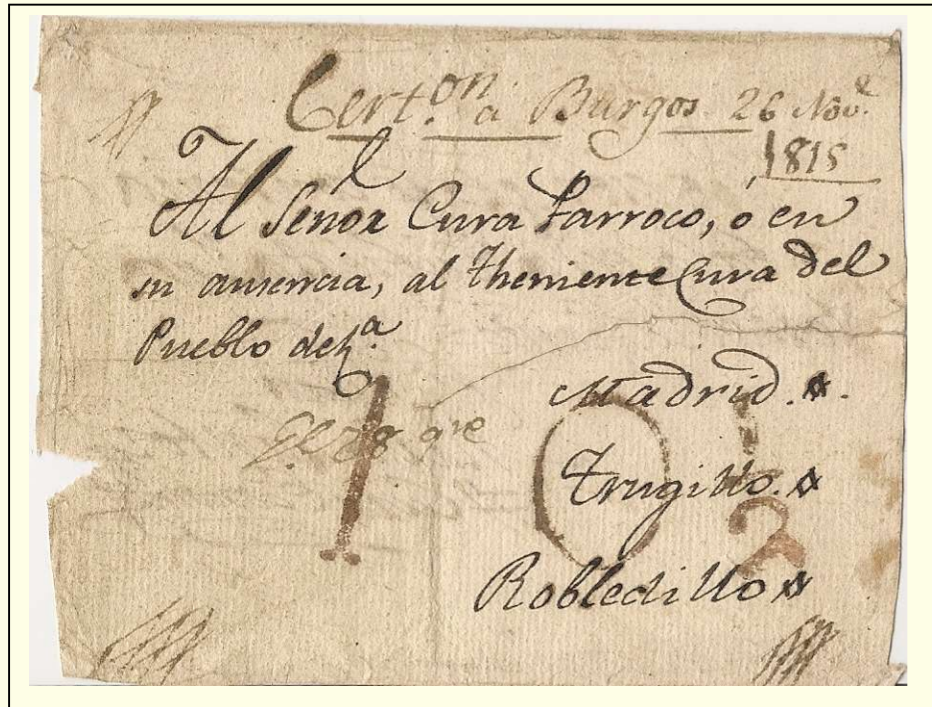 Cert.on a Burgos 26 Nov.e
1815
Al Señor Cura Parroco, o en
su ausencia, al Theniente Cura del
Pueblo de
Madrid.
Trugillo.
Robledillo
1 0 1
2